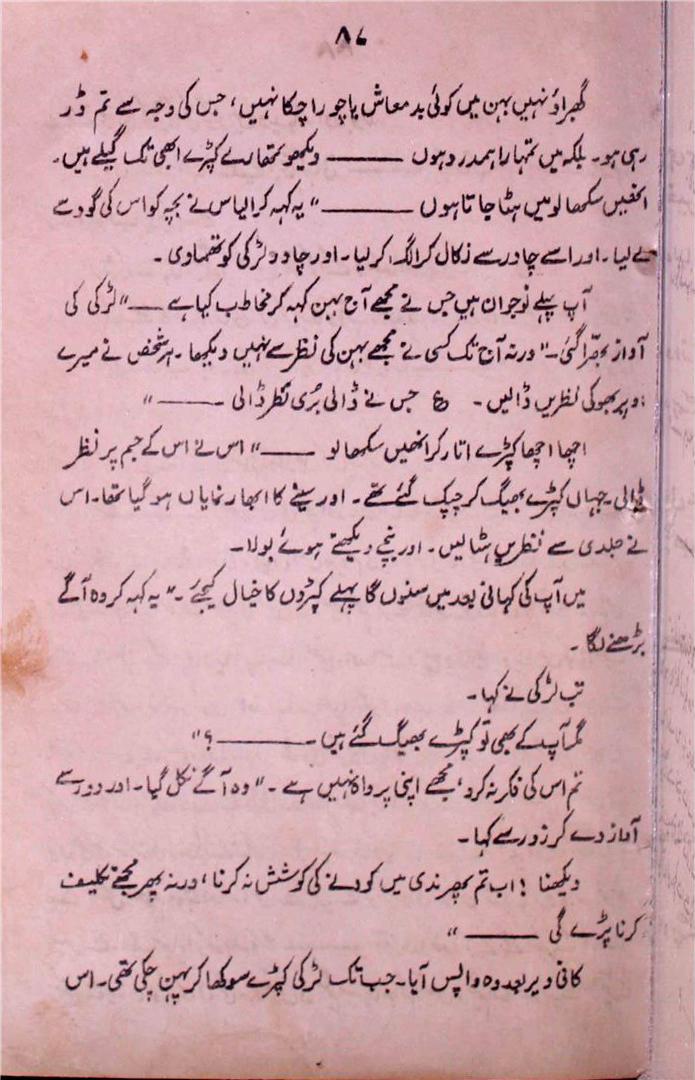 ۸۷
گھبراؤ نہیں بہن میں کوئی بدمعاش یا چور اچکا نہیں، جس کی وجہ سے تم ڈر
رہی ہو۔ بلکہ میں تمہارا ہمدرد ہوں ——— دیکھو تمھارے کپڑے ابھی تک گیلے ہیں۔
انھیں سکھا لو میں ہٹا جاتا ہوں ———" یہ کہہ کر الیاس نے بچہ کو اس کی گود سے
لے لیا۔ اور اسے چادر سے نکال کر الگ کر لیا۔ اور چادر لڑکی کو تھما دی۔
آپ پہلے نوجوان ہیں جس نے مجھے آج بہن کہہ کر مخاطب کیا ہے ——" لڑکی کی
آواز بھرّا گئی۔" ورنہ آج تک کسی نے مجھے بہن کی نظر سے نہیں دیکھا۔ ہر شخص نے میرے
اوپر بھوکی نظریں ڈالیں۔ ع جس نے ڈالی بُری نظر ڈالی ———"
اچھا اچھا کپڑے اتار کر انھیں سکھا لو ———" اس نے اس کے جسم پر نظر
ڈالی۔ جہاں کپڑے بھیگ کر چپک گئے تھے۔ اور سینے کا ابھار نمایاں ہو گیا تھا۔ اس
نے جلدی سے نظریں ہٹا لیں۔ اور نیچے دیکھتے ہوئے بولا۔
میں آپ کی کہانی بعد میں سنوں گا پہلے کپڑوں کا خیال کیجئے۔" یہ کہہ کر وہ آگے
بڑھنے لگا۔
تب لڑکی نے کہا۔
مگر آپ کے بھی تو کپڑے بھیگ گئے ہیں ———؟"
تم اس کی فکر نہ کرو، مجھے اپنی پروا نہیں ہے۔" وہ آگے نکل گیا۔ اور دور سے
آواز دے کر زور سے کہا۔
دیکھنا! اب تم پھر ندی میں کودنے کی کوشش نہ کرنا، ورنہ پھر مجھے تکلیف
کرنا پڑے گی ———"
کافی دیر بعد وہ واپس آیا۔ جب تک لڑکی کپڑے سوکھا کر پہن چکی تھی۔ اس